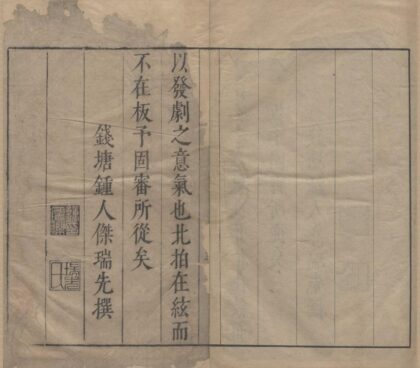 以發劇之意氣也北拍在絃而
不在板予固審所從矣
錢塘鍾人傑瑞先撰